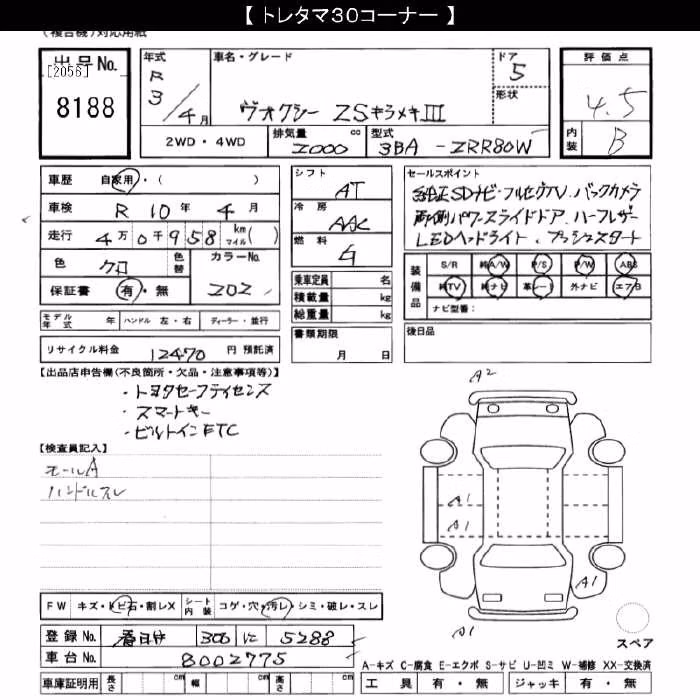 【 トレタマ30コーナー 】
(複合機)対応用紙
出品No.
[2056]
8188
年式 R 3/4月
車名・グレード
ヴォクシー ZSキラメキⅢ
ドア 5
形状
評価点 4.5
内装 B
2WD・4WD
排気量 2000 cc
型式 3BA-ZRR80W
車歴 自家用・( )
車検 R 10年 4月
走行 4万0千958 km マイル( )
色 クロ 色替
カラーNo. 202
保証書 有・無
シフト AT
冷房 AAC
燃料 G
乗車定員 名
積載量 kg
総重量 kg
セールスポイント
純正SDナビ・フルセグTV、バックカメラ
両側パワースライドドア、ハーフレザー
LEDヘッドライト、プッシュスタート
装備品
S/R 純A/W P/S P/W ABS
純TV 純ナビ 革シート 外ナビ エアB
ナビ型番:
モデル年式 年 ハンドル 左・右 ディーラー・並行
書類期限 月 日
後日品
リサイクル料金 12470 円 預託済
【出品店申告欄(不良箇所・欠品・注意事項等)】
・トヨタセーフティセンス
・スマートキー
・ビルトインETC
【検査員記入】
モールA
ハンドルスレ
A2
A1
A1
A1
A1
FW キズ・トビ石・割レX
シート内装 コゲ・穴・汚レ・シミ・破レ・スレ
登録No. 春日井 300 に 5288
車台No. 8002775
スペア
A-キズ C-腐食 E-エクボ S-サビ U-凹ミ W-補修 XX-交換済
車庫証明用 長さ cm 幅 cm 高さ cm
工具 有・無 ジャッキ 有・無